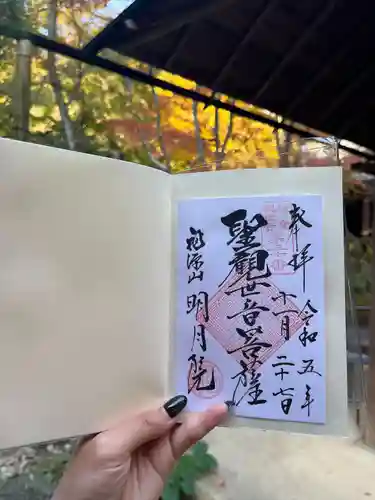 奉拝
令和五年
十一月二十七日
聖觀世音菩薩
福源山
明月院